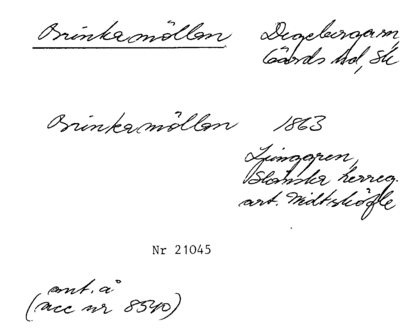 Brinkamöllan Degeberga sn,
Gärds hd, Sk
Brinkamöllan 1863
Ljunggren,
Skånska herreg.
art. Widtsköfle
Nr 21045
ant. å
(acc nr 8540)